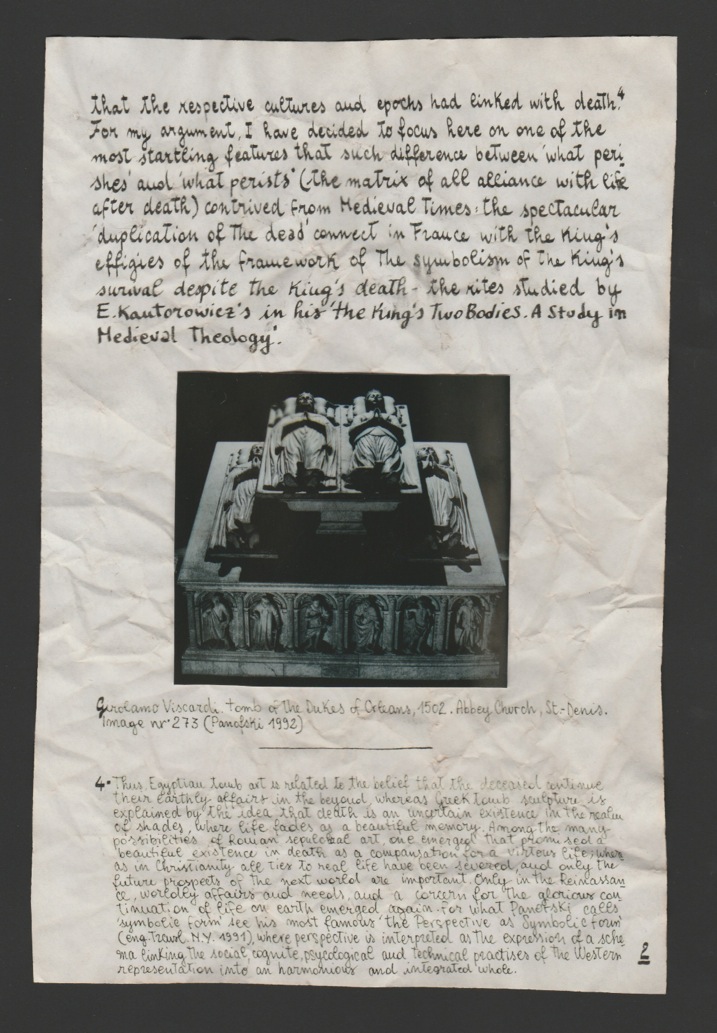 that the respective cultures and epochs had linked with death."4
For my argument, I have decided to focus here on one of the
most startling features that such difference between 'what peri
shes' and 'what perists' (the matrix of all alliance with life
after death) contrived from Medieval Times: the spectacular
'duplication of the dead' connect in France with the King's
effigies of the framework of the symbolism of the King's
surival despite the King's death - the rites studied by
E. Kantorowicz's in his 'the King's Two Bodies. A Study in
Medieval Theology'.
Girolamo Viscardi. tomb of the Dukes of Orleans, 1502. Abbey Church, St.-Denis.
Image nr 273 (Panofski 1992)
4. Thus Egyptian tomb art is related to the belief that the deceased continue
their earthly affairs in the beyond, whereas Greek tomb sculpture is
explained by the idea that death is an uncertain existence in the realm
of shades, where life fades as a beautiful memory. Among the many
possibilities of Roman sepulcral art, one emerged that promised a
beautiful existence in death as a compansation for a virtous life, wher
as in Christianity all ties to real life have been severed, and only the
future prospects of the next world are important. Only in the Reinlassan
ce, worldly affairs and needs, and a corcern for the glorious con
tinuation of life on earth emerged again. For what Panofski calls
'symbolic form' see his most famous 'the Perspective as Symbolic form'
(eng. trawl. N.Y. 1991), where perspective is interpreted as the expression of a sche
ma linking the social, cognite, psycological and technical practises of the Western
representation into an harmonious and integrated whole.
2